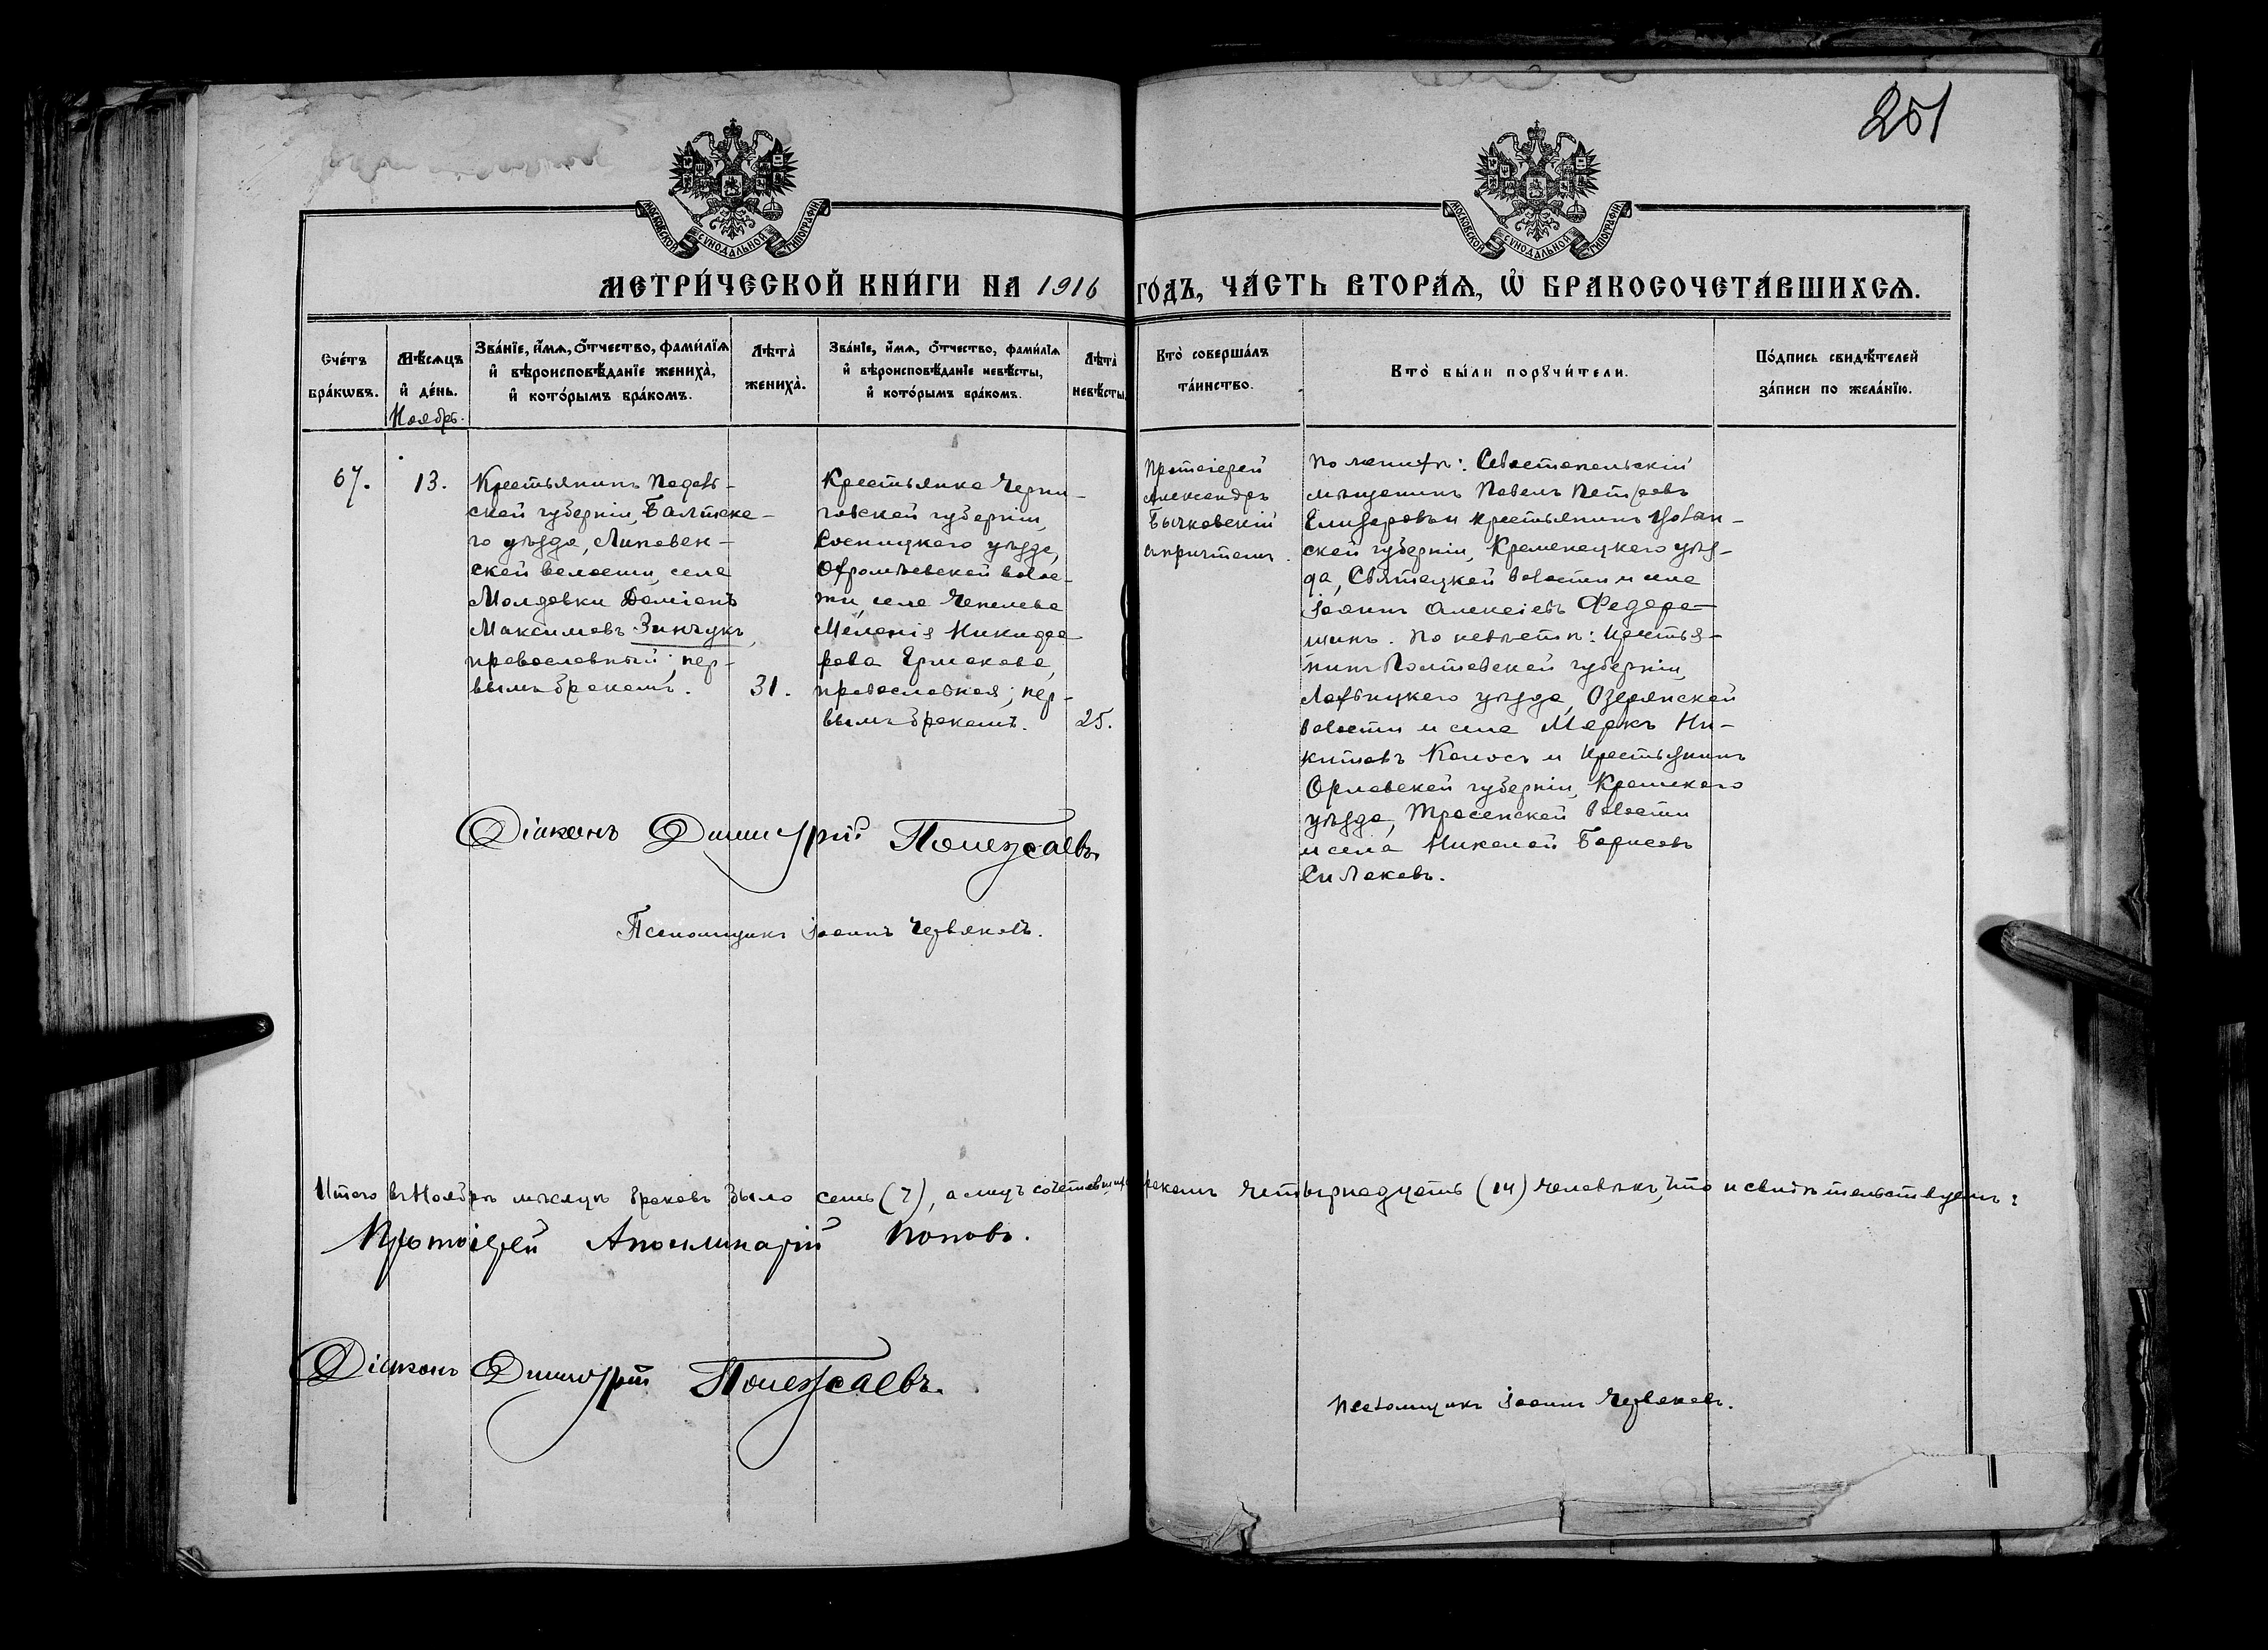 251
МОСКОВСКОЙ СѴНОДАЛЬНОЙ ТИПОГРАФІИ
МОСКОВСКОЙ СѴНОДАЛЬНОЙ ТИПОГРАФІИ
МЕТРИ́ЧЕСКОЙ КНИ́ГИ НА 1916 ГО́ДЪ, ЧА́СТЬ ВТОРА́Ѧ, Ѽ БРАКОСОЧЕТА́ВШИХСѦ.
Сче́тъ бра́кѡвъ.
Мѣ́сѧцъ и҆ де́нь.
Ноябрь.
Зва́нїе, и҆́мѧ, ѻ҆́тчество, фами́лїѧ
и҆ вѣроисповѣ́данїе жениха̀,
и҆ кото́рымъ бра́комъ.
Лѣта̀ жениха̀.
Зва́нїе, и҆́мѧ, ѻ҆́тчество, фами́лїѧ
и҆ вѣроисповѣ́данїе невѣ́сты,
и҆ кото́рымъ бра́комъ.
Лѣта̀ невѣ́сты
Кто̀ соверша́лъ
та́инство.
Кто̀ бы́ли порꙋчи́тели.
По́дпись свидѣ́телей
за́писи по жела́нїю.
67.
13.
Крестьянинъ Подоль-
ской губерніи, Балтска-
го уѣзда, Липовен-
ской волости, села
Молдовки Доміанъ
Максимовъ Зинчукъ,
православный; пер-
вымъ бракомъ.
31.
Крестьянка Черни-
говской губерніи,
Сосницкаго уѣзда,
Охромѣевской волос-
ти, села Чепелева
Меланія Никифо
рова Ермакова,
православная; пер-
вымъ бракомъ.
25.
Протоіерей
Александръ
Бычковскій
съ причтомъ.
По женихѣ: Севастопольскій
мѣщанинъ Павелъ Петровъ
Елизаровъ и крестьянинъ Волын-
ской губерніи, Кременецкаго уѣз-
да, Святецкой волости и села
Іоаннъ Алексіевъ Федора-
шинъ. По невѣстѣ: крестья-
нинъ Полтавской губерніи,
Лохвицкаго уѣзда, Озерянской
волости и села Маркъ Ни-
китовъ Колосъ и крестьянинъ
Орловской губерніи, Кромскаго
уѣзда, Тросенской волости
и села Николай Борисовъ
Силаковъ.
Діаконъ Димитрій Полежаевъ
Псаломщикъ Іоаннъ Червяковъ.
Итого въ Ноябрѣ мѣсяцѣ браковъ было семь (7), а лицъ сочетавшихся бракомъ четырнадцать (14) человѣкъ, что и свидѣтельствуемъ:
Протоіерей Аполлинарій Поповъ.
Діаконъ Димитрій Полежаевъ.
Псаломщикъ Іоаннъ Червяковъ.